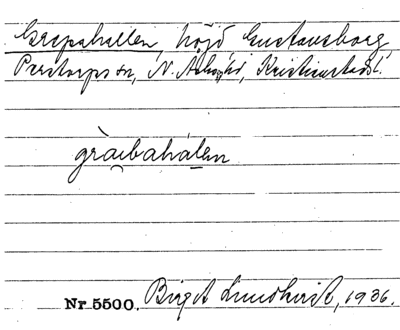 Grepahallen, höjd Gustavsborg,
Perstorps sn, N. Åsbo hd, Kristianstads l.
gràibahálen
Nr. 5500. Birgit Lundkvist, 1936.